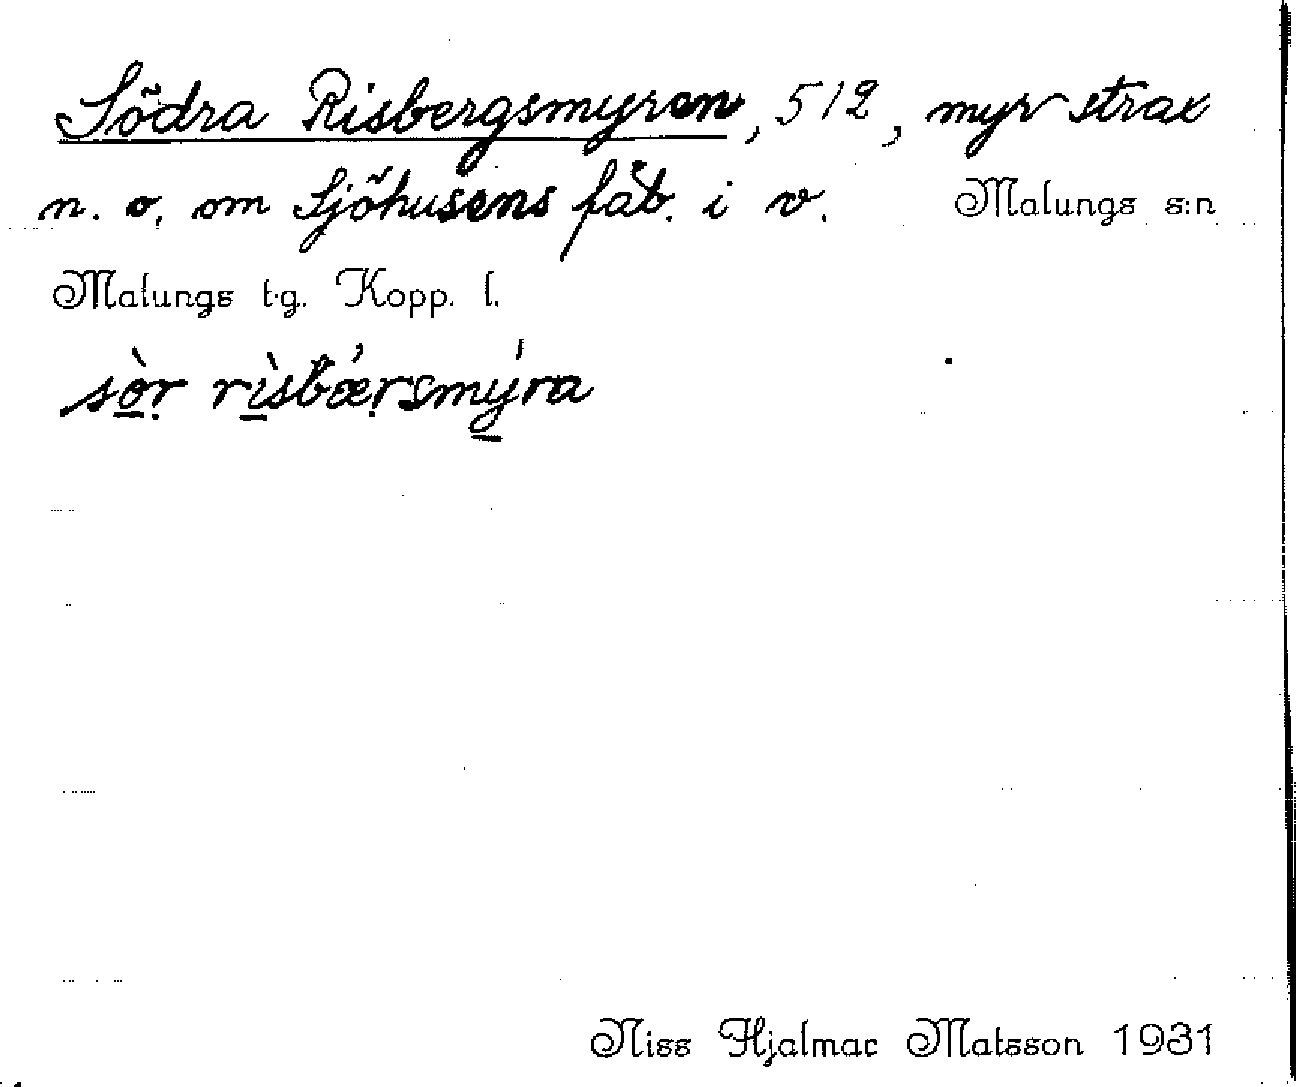 Södra Risbergsmyren, 512, myr strax
n. o. om Sjöhusens fäb. i v. Malungs s:n
Malungs t.g. Kopp. l.
sò̲ṛ rì̲sbæ̓ṛsmý̲ra
Niss Hjalmar Matsson 1931